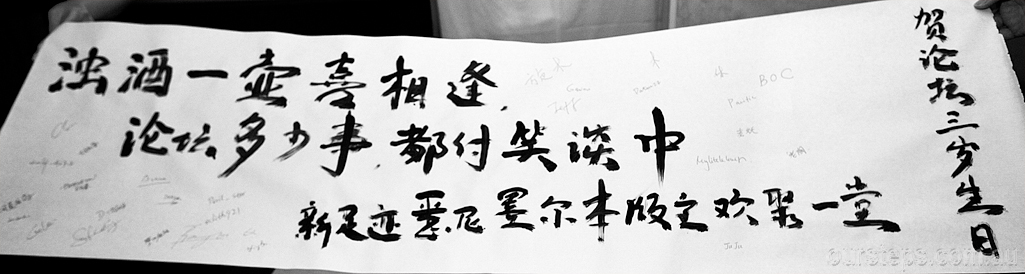 贺论坛三岁生日
浊酒一壶喜相逢，
论坛多少事，都付笑谈中
新足迹悉尼墨尔本版主欢聚一堂
BOC
JoJo
oursteps.com.au